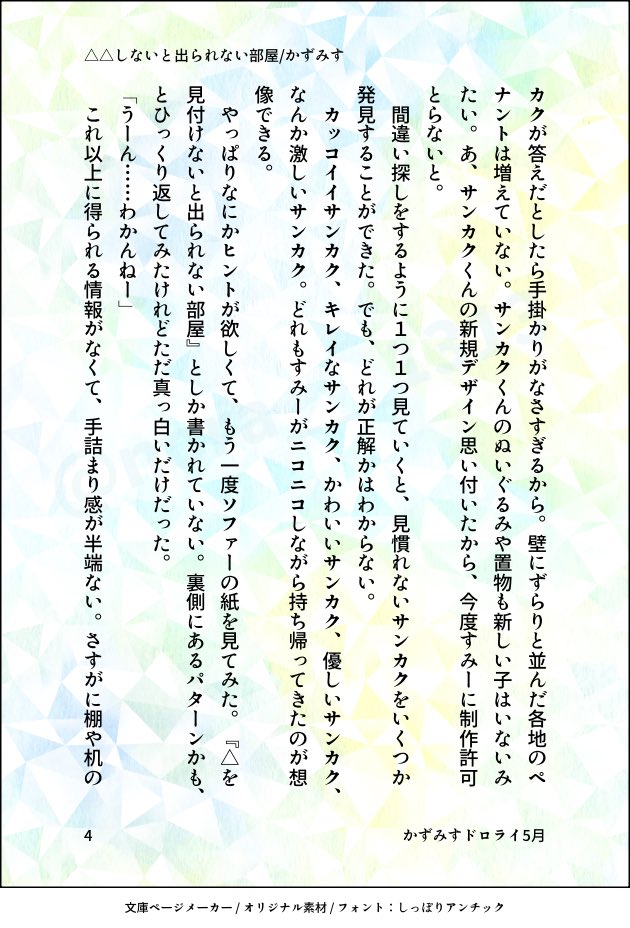 △△しないと出られない部屋/かずみす
カクが答えだとしたら手掛かりがなさすぎるから。壁にずらりと並んだ各地のペ
ナントは増えていない。サンカクくんのぬいぐるみや置物も新しい子はいないみ
たい。あ、サンカクくんの新規デザイン思い付いたから、今度すみーに制作許可
とらないと。
間違い探しをするように１つ１つ見ていくと、見慣れないサンカクをいくつか
発見することができた。でも、どれが正解かはわからない。
カッコイイサンカク、キレイなサンカク、かわいいサンカク、優しいサンカク、
なんか激しいサンカク。どれもすみーがニコニコしながら持ち帰ってきたのが想
像できる。
やっぱりなにかヒントが欲しくて、もう一度ソファーの紙を見てみた。『△を
見付けないと出られない部屋』としか書かれていない。裏側にあるパターンかも、
とひっくり返してみたけれどただ真っ白いだけだった。
「うーん……わかんねー」
これ以上に得られる情報がなくて、手詰まり感が半端ない。さすがに棚や机の
4
かずみすドロライ5月
文庫ページメーカー / オリジナル素材 / フォント：しっぽりアンチック